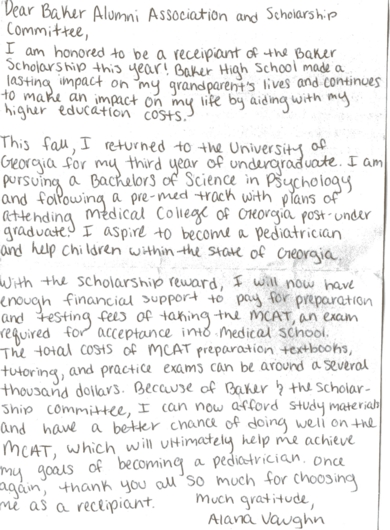 Dear Baker Alumni Association and Scholarship
Committee,
I am honored to be a receipiant of the Baker
Scholarship this year! Baker High School made a
lasting impact on my grandparent's lives and continues
to make an impact on my life by aiding with my
higher education costs.
This fall, I returned to the University of
Georgia for my third year of undergraduate. I am
pursuing a Bachelors of Science in Psychology
and following a pre-med track with plans of
attending Medical College of Georgia post-under
graduate! I aspire to become a pediatrician
and help children within the state of Georgia.
With the scholarship reward, I will now have
enough financial support to pay for preparation
and testing fees of taking the MCAT, an exam
required for acceptance into Medical school.
The total costs of MCAT preparation textbooks,
tutoring, and practice exams can be around a several
thousand dollars. Because of Baker & the scholar-
ship committee, I can now afford study materials
and have a better chance of doing well on the
MCAT, which will ultimately help me achieve
my goals of becoming a pediatrician. Once
again, thank you all so much for choosing
me as a receipiant. Much gratitude,
Alana Vaughn